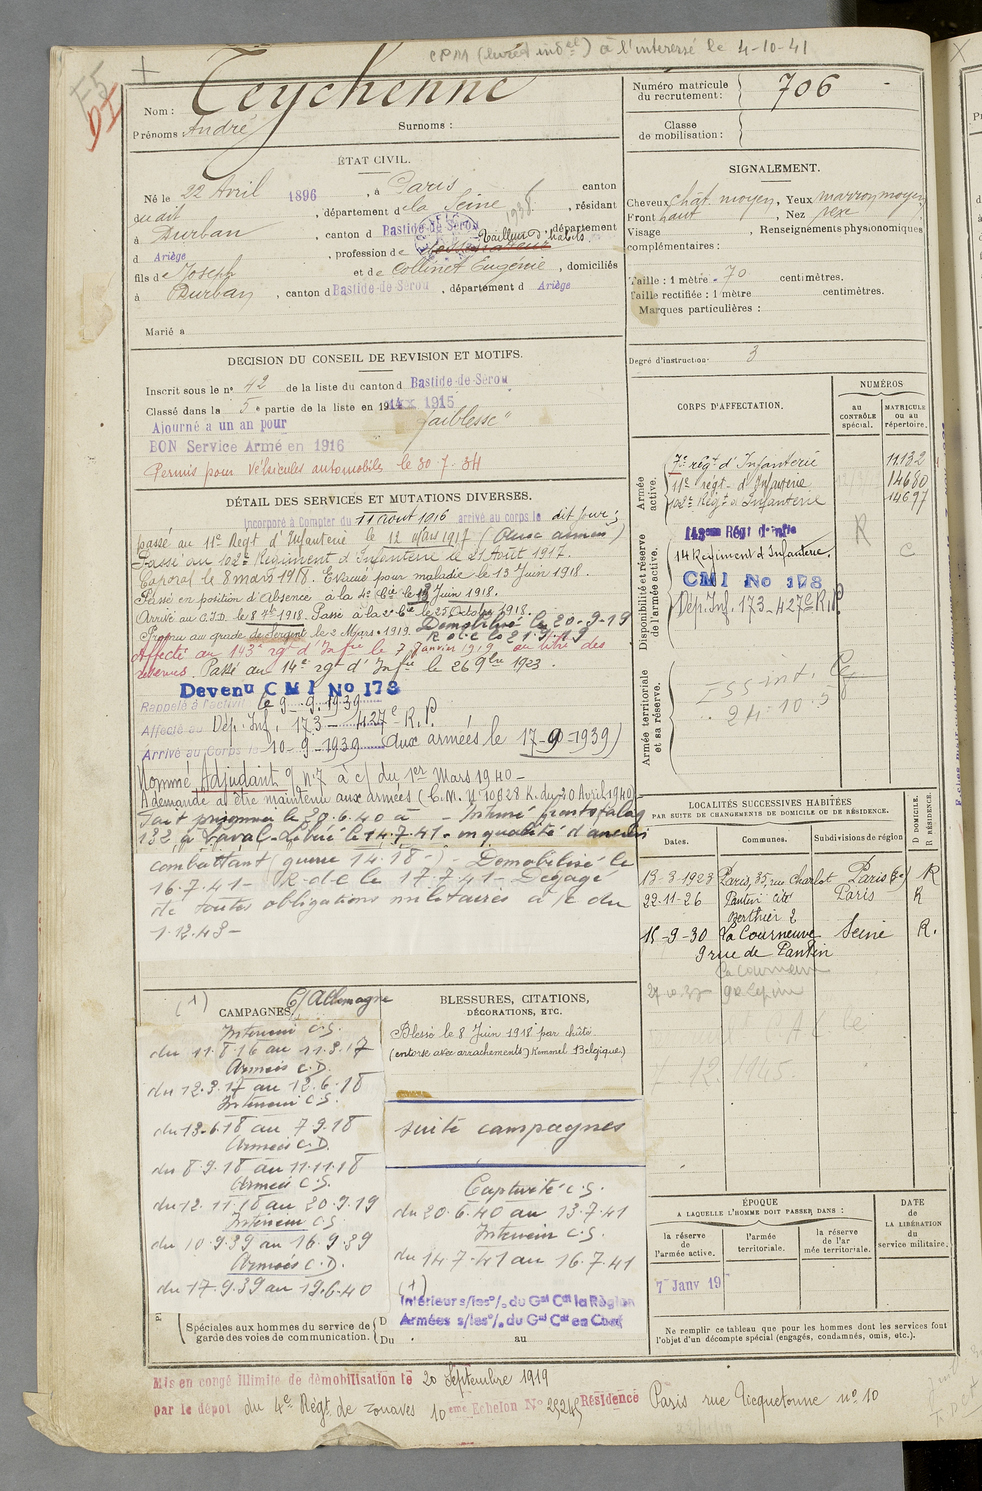 CPMA (livret indel) à l'interessé le 4-10-41
F5
DI
Nom : Teychenné
Prénoms : André
Surnoms :
Numéro matricule
du recrutement : 706
Classe
de mobilisation :
ÉTAT CIVIL.
Né le 22 Avril 1896, à Paris canton
dudit, département de la Seine, résidant
à Durban, canton d Bastide-de-Sérou, département
d Ariège, profession de Tailleur d'habits
1938
fils de Joseph et de Collinet Eugénie, domiciliés
à Durban, canton d Bastide-de-Sérou, département d Ariège
Marié a
SIGNALEMENT.
Cheveux chât. moyen, Yeux marron moyen
Front haut, Nez vexe
Visage , Renseignements physionomiques
complémentaires :
Taille : 1 mètre 70 centimètres.
Taille rectifiée : 1 mètre centimètres.
Marques particulières :
Degré d'instruction : 3
DÉCISION DU CONSEIL DE REVISION ET MOTIFS.
Inscrit sous le n° 42 de la liste du canton d Bastide-de-Sérou
Classé dans la 5e partie de la liste en 1915
Ajourné a un an pour faiblesse
BON Service Armé en 1916
Permis pour véhicules automobils le 30.7.34
DÉTAIL DES SERVICES ET MUTATIONS DIVERSES.
Incorporé à Compter du 11 Aout 1916 arrivé au corps le dit jour ;
passé au 11e Régt d'Infanterie le 12 Mars 1917 (aux armées)
Passé au 102e Régiment d'Infanterie le 21 Août 1917.
Caporal le 8 mars 1918. Evacué pour maladie le 13 Juin 1918.
Passé en position d'Absence à la 4e Cie le 13 Juin 1918.
Arrivé au C.I.D. le 8 7bre 1918. Passé à la 2e Cie le 25 Octobre 1918.
Promu au grade de Sergent le 2 Mars 1919. Démobilisé le 20-9-19
R.d.c le 21.9.19
Affecté au 143e rgt d'Infrie le 7 Janvier 1919 au titre des
réserves. Passé au 14e rgt d'Infie le 26 9bre 1923.
Devenu CMI No 173
Rappelé à l'activité le 9-9-1939
Affecté au Dép. Inf. 173 - 427e R.P.
Arrivé au Corps le 10-9-1939 aux armées le 17-9-1939)
Nommé Adjudant o/ n°7 à c/ du 1er Mars 1940-
A demandé à être maintenu aux armées (C.M. N° 10628 K. du 20 Avril 1940)-
Fait prisonnier le 20.6.40 à - Interné frontstalag
132 à Laval - Libéré le 14.7.41 - en qualité d'ancien
combattant (guerre 14.18-) - Démobilisé le
16.7.41 - R.d.c le 17.7.41 - Dégagé
de toutes obligations militaires à /c du
1.12.43-
CORPS D'AFFECTATION.
NUMÉROS
au
CONTRÔLE
spécial.
MATRICULE
ou au
répertoire.
Armée
active.
7e régt d'Infanterie 11132
11e régt d'Infanterie 14680
102e Régt d'Infanterie 14697
Disponibilité et réserve
de l'armée active.
143eme Régt d'Infie R
14 Régiment d'Infanterie. C
CMI No 173
Dép. Inf. 173 - 427e R.P
Armée territoriale
et sa réserve.
24-10-5
LOCALITÉS SUCCESSIVES HABITÉES
PAR SUITE DE CHANGEMENTS DE DOMICILE OU DE RÉSIDENCE.
Dates.
Communes.
Subdivisions de région
D DOMICILE.
R RÉSIDENCE.
13-3-1923 Paris, 35, rue Charlot Paris (3e) R
22-11-26 Pantin cité Paris R
Berthier 2
15-9-30 La Courneuve Seine R.
9 rue de Pantin
La Courneuve
7 12.1945
(1) C/ Allemagne
CAMPAGNES.
Intérieur C.S.
du 11.8.16 au 11.3.17
Armées C.D.
du 12.3.17 au 12.6.18
Intérieur C.S.
du 13.6.18 au 7.9.18
Armées C.D.
du 8.9.18 au 11.11.18
Armées C.S.
du 12.11.18 au 20.9.19
Intérieur C.S.
du 10.9.39 au 16.9.39
Armées C.D.
du 17.9.39 au 19.6.40
BLESSURES, CITATIONS,
DÉCORATIONS, ETC.
Blessé le 8 Juin 1918 par chûte
(entorse avec arrachement) Kemmel (Belgique)
suite campagnes
Captivité C.S.
du 20.6.40 au 13.7.41
Intérieur C.S.
du 14.7.41 au 16.7.41
(1)
Intérieur s/les o/. du Gal Ct la Région
Armées s/les o/. du Gal Ct en Chef
Spéciales aux hommes du service de
garde des voies de communication.
D
Du au
ÉPOQUE
A LAQUELLE L'HOMME DOIT PASSER DANS :
la réserve
de
l'armée active.
l'armée
territoriale.
la réserve
de l'ar
mée territoriale.
DATE
de
LA LIBÉRATION
du
service militaire.
7 Janv 19
Ne remplir ce tableau que pour les hommes dont les services font
l'objet d'un décompte spécial (engagés, condamnés, omis, etc.).
Mis en congé illimité de démobilisation le 20 Septembre 1919
par le dépôt du 4e Régt de zouaves 10eme Echelon No 25245 Résidence Paris rue Tiquetonne no 10